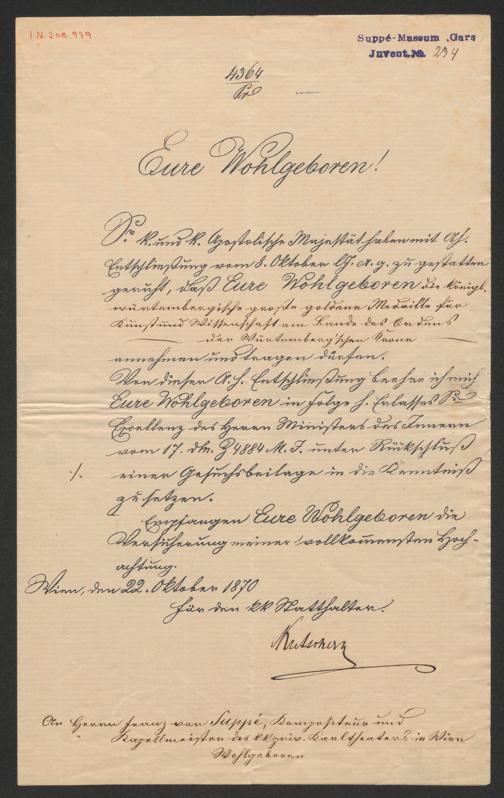 I.N. 208.979
Suppé-Museum, Gars
Invent. No. 234
4364
Pr
Eure Wohlgeboren!
Se. k. und k. Apostolische Majestät haben mit Ah.
Entschließung vom 8. Oktober l.J. a. g. zu gestatten
geruht, daß Eure Wohlgeboren die königl.
württembergische große goldene Medaille für
Kunst und Wissenschaft am Bande des Ordens
der Würtemberg'schen Krone
annehmen und tragen dürfen.
Von dieser A. h. Entschließung beehre ich mich
Eure Wohlgeboren in Folge h. Erlasses Sr
Excellenz des Herrn Ministers des Innern
vom 17. dM. Z 4884 M. I. unter Rückschluß
./. einer Gesuchsbeilage in die Kenntniß
zu setzen.
Empfangen Eure Wohlgeboren die
Versicherung meiner vollkommensten Hoch-
achtung.
Wien, den 22. Oktober 1870
Für den kk Statthalter.
Kutschera
An Herrn Franz von Suppé, Kompositeur und
Kapellmeister des kk priv. Karltheaters in Wien
Wohlgeboren